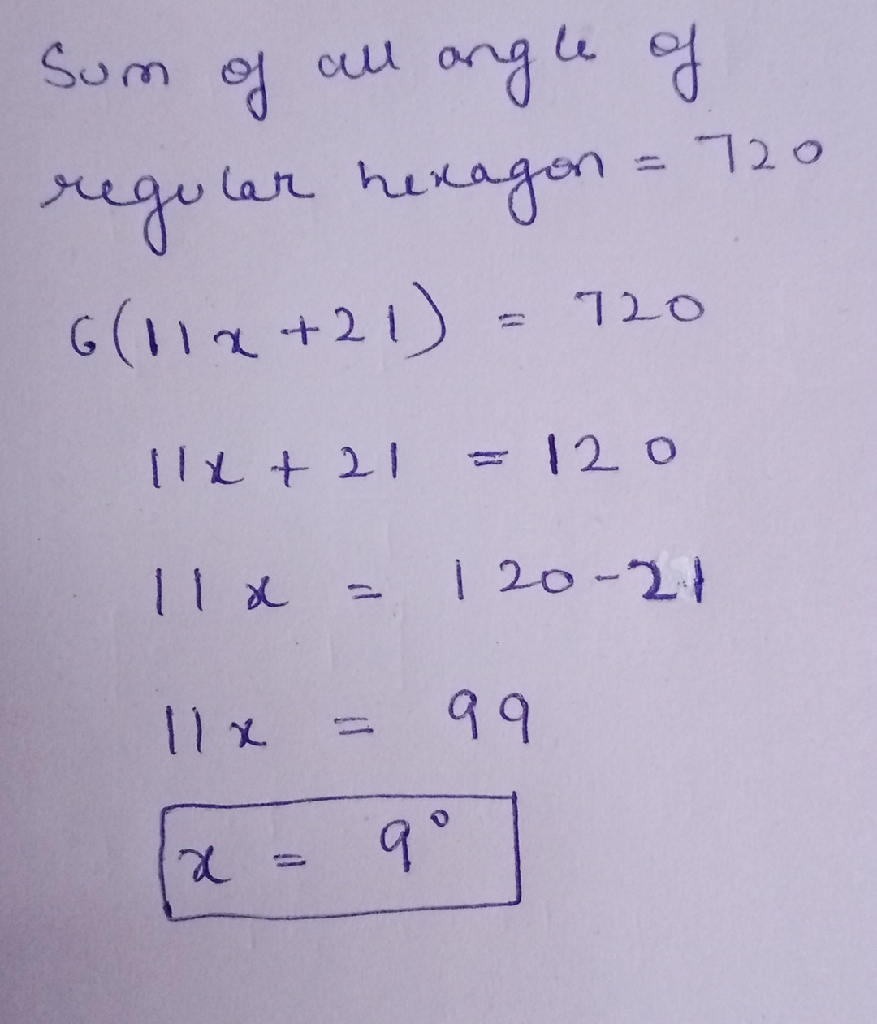 Sum of all angle of
regular hexagon = 720
6(11x + 21) = 720
11x + 21 = 120
11x = 120 - 21
11x = 99
x = 9°